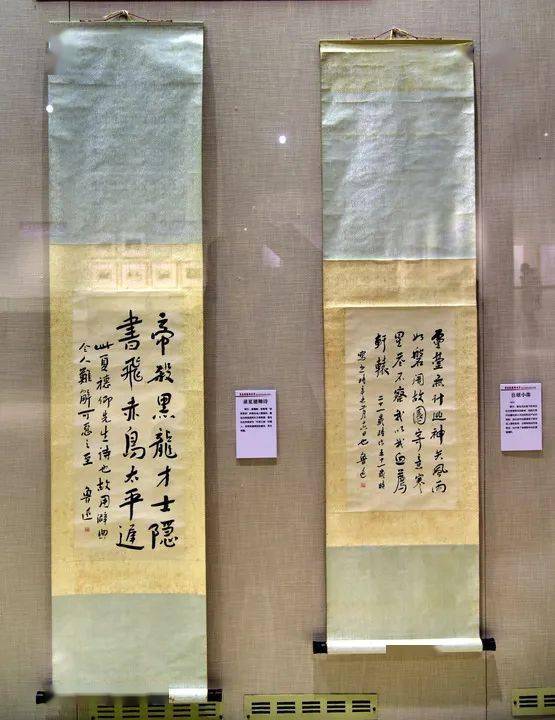 帝殺黑龍才士隱
書飛赤鳥太平遲
此夏穗卿先生詩也故用僻典
令人難解可惡之至
魯迅
录夏穗卿诗
靈臺無計逃神矢風雨
如磐闇故園寄意寒
星荃不察我以我血薦
軒轅
二十一歲時作五十一歲時
寫之時辛未二月十六日也 魯迅
自题小像